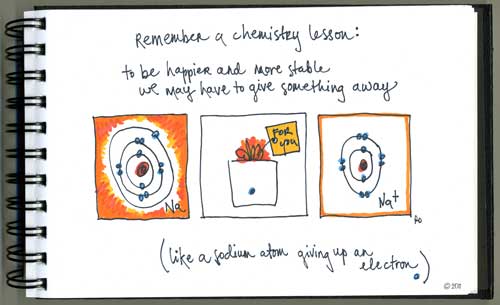 Remember a chemistry lesson:
to be happier and more stable
we may have to give something away
FOR
you
Na
Na+
(like a sodium atom giving up an
electron)
©2011